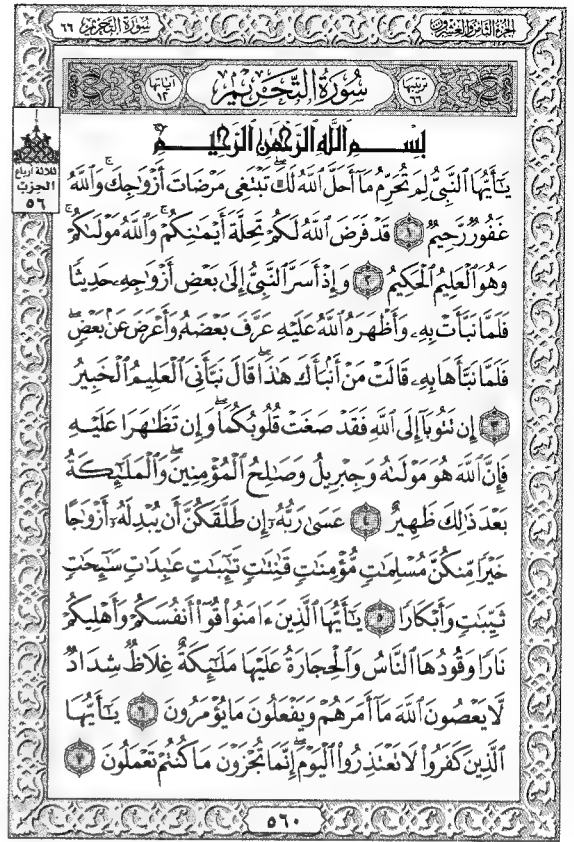 الجزء الثامن والعشرون
سورة التحريم ٦٦
ترتيبها ٦٦
سُورَةُ التَّحْرِيمِ
آياتها ١٢
ثلاثة أرباع
الحزب
٥٦
بِسْمِ ٱللَّهِ ٱلرَّحْمَٰنِ ٱلرَّحِيمِ
يَٰٓأَيُّهَا ٱلنَّبِىُّ لِمَ تُحَرِّمُ مَآ أَحَلَّ ٱللَّهُ لَكَ ۖ تَبْتَغِى مَرْضَاتَ أَزْوَٰجِكَ ۚ وَٱللَّهُ
غَفُورٌ رَّحِيمٌ ١ قَدْ فَرَضَ ٱللَّهُ لَكُمْ تَحِلَّةَ أَيْمَٰنِكُمْ ۚ وَٱللَّهُ مَوْلَىٰكُمْ ۖ
وَهُوَ ٱلْعَلِيمُ ٱلْحَكِيمُ ٢ وَإِذْ أَسَرَّ ٱلنَّبِىُّ إِلَىٰ بَعْضِ أَزْوَٰجِهِۦ حَدِيثًا
فَلَمَّا نَبَّأَتْ بِهِۦ وَأَظْهَرَهُ ٱللَّهُ عَلَيْهِ عَرَّفَ بَعْضَهُۥ وَأَعْرَضَ عَنۢ بَعْضٍ ۖ
فَلَمَّا نَبَّأَهَا بِهِۦ قَالَتْ مَنْ أَنۢبَأَكَ هَٰذَا ۖ قَالَ نَبَّأَنِىَ ٱلْعَلِيمُ ٱلْخَبِيرُ
٣ إِن تَتُوبَآ إِلَى ٱللَّهِ فَقَدْ صَغَتْ قُلُوبُكُمَا ۖ وَإِن تَظَٰهَرَا عَلَيْهِ
فَإِنَّ ٱللَّهَ هُوَ مَوْلَىٰهُ وَجِبْرِيلُ وَصَٰلِحُ ٱلْمُؤْمِنِينَ ۖ وَٱلْمَلَٰٓئِكَةُ
بَعْدَ ذَٰلِكَ ظَهِيرٌ ٤ عَسَىٰ رَبُّهُۥٓ إِن طَلَّقَكُنَّ أَن يُبْدِلَهُۥٓ أَزْوَٰجًا
خَيْرًا مِّنكُنَّ مُسْلِمَٰتٍ مُّؤْمِنَٰتٍ قَٰنِتَٰتٍ تَٰٓئِبَٰتٍ عَٰبِدَٰتٍ سَٰٓئِحَٰتٍ
ثَيِّبَٰتٍ وَأَبْكَارًا ٥ يَٰٓأَيُّهَا ٱلَّذِينَ ءَامَنُوا۟ قُوٓا۟ أَنفُسَكُمْ وَأَهْلِيكُمْ
نَارًا وَقُودُهَا ٱلنَّاسُ وَٱلْحِجَارَةُ عَلَيْهَا مَلَٰٓئِكَةٌ غِلَاظٌ شِدَادٌ
لَّا يَعْصُونَ ٱللَّهَ مَآ أَمَرَهُمْ وَيَفْعَلُونَ مَا يُؤْمَرُونَ ٦ يَٰٓأَيُّهَا
ٱلَّذِينَ كَفَرُوا۟ لَا تَعْتَذِرُوا۟ ٱلْيَوْمَ ۖ إِنَّمَا تُجْزَوْنَ مَا كُنتُمْ تَعْمَلُونَ ٧
٥٦٠